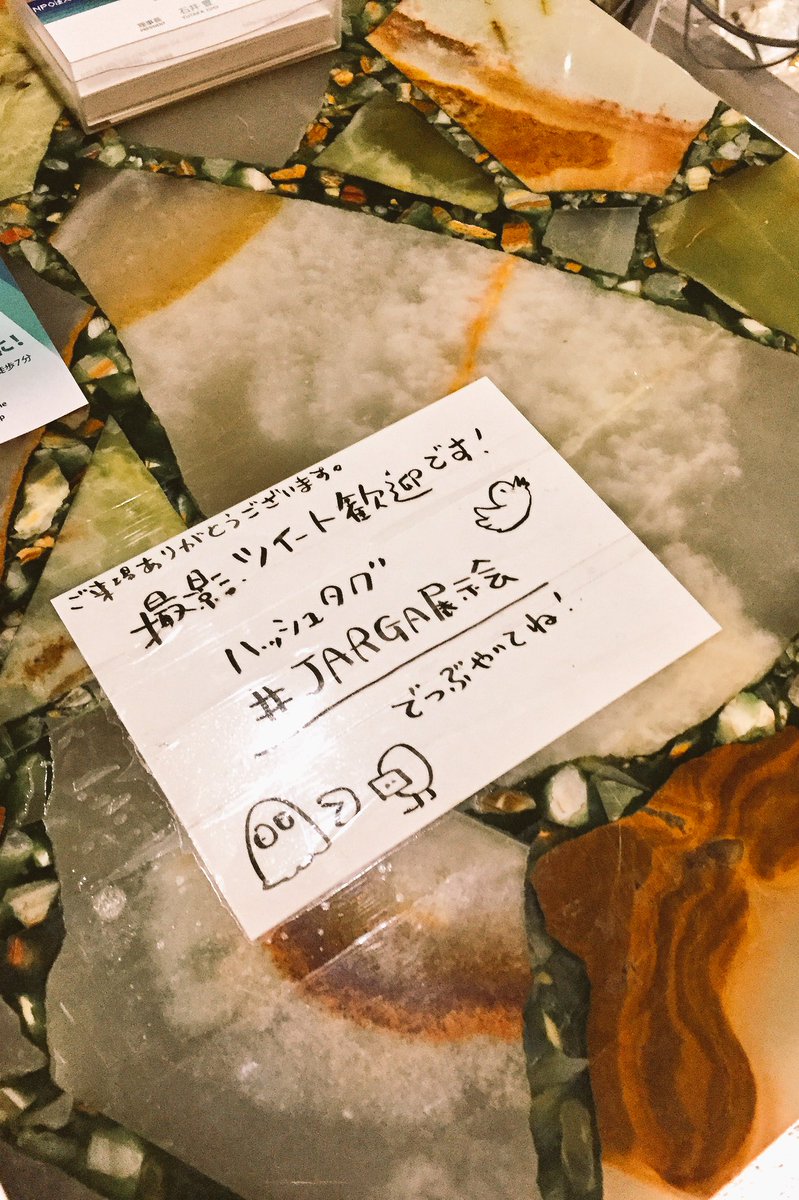 NPO法人
理事長
石井 豊
PRESIDENT
に!
徒歩7分
ご来場ありがとうございます。
撮影、ツイート歓迎です!
ハッシュタグ
#JARGA展示会
でつぶやいてね!